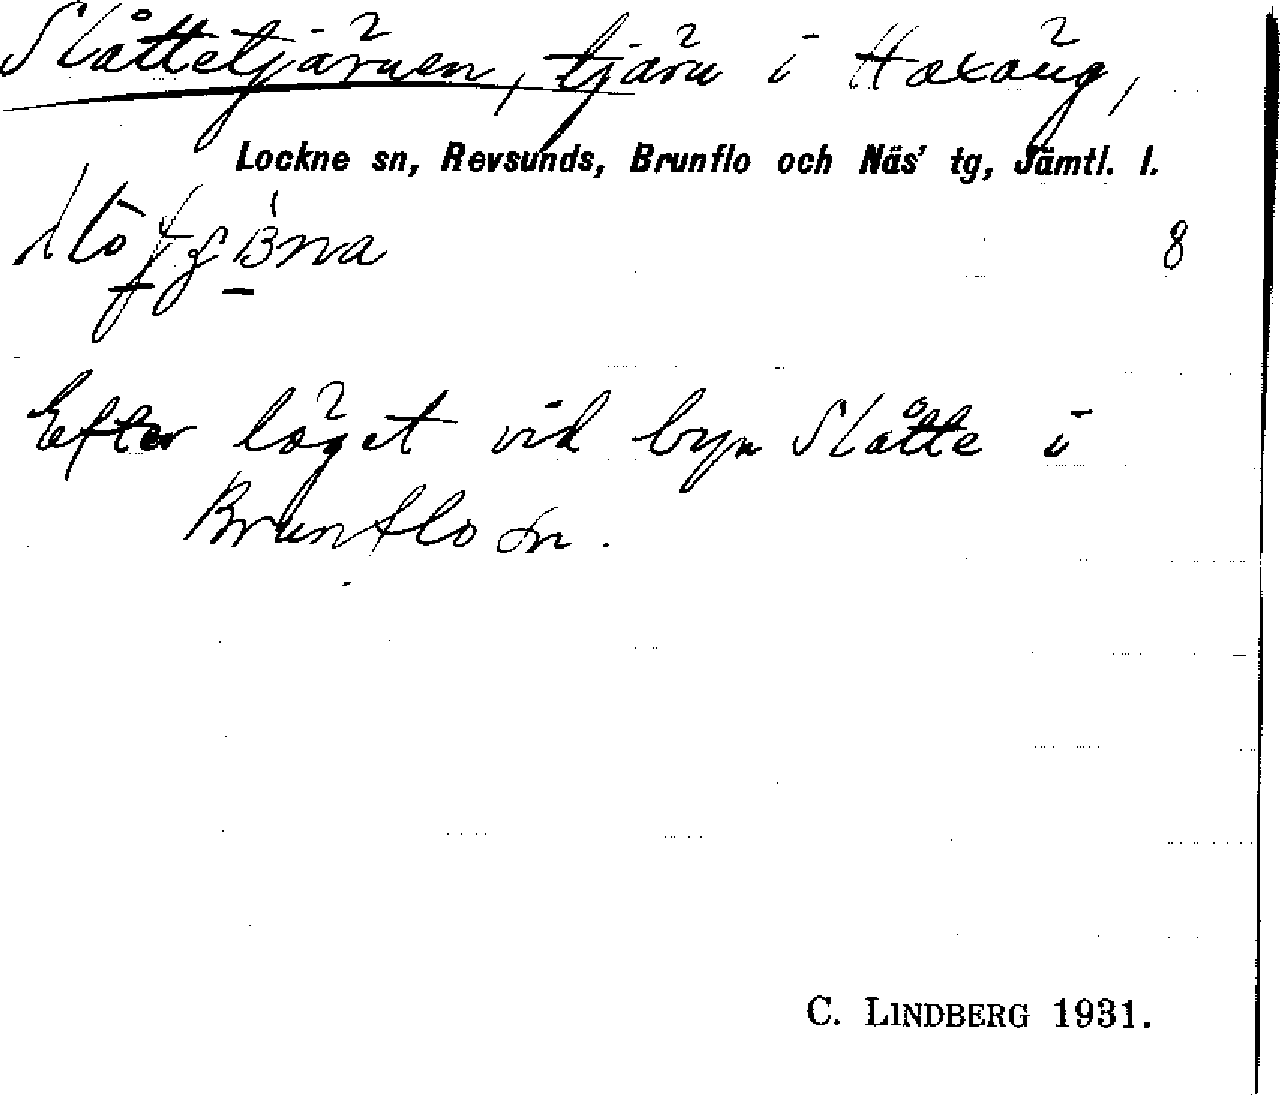 Slåttetjärnen, tjärn i Haxäng,
Lockne sn, Revsunds, Brunflo och Näs' tg, Jämtl. l.
8
Efter läget vid byn Slåtte i
Brunflo sn.
C. LINDBERG 1931.